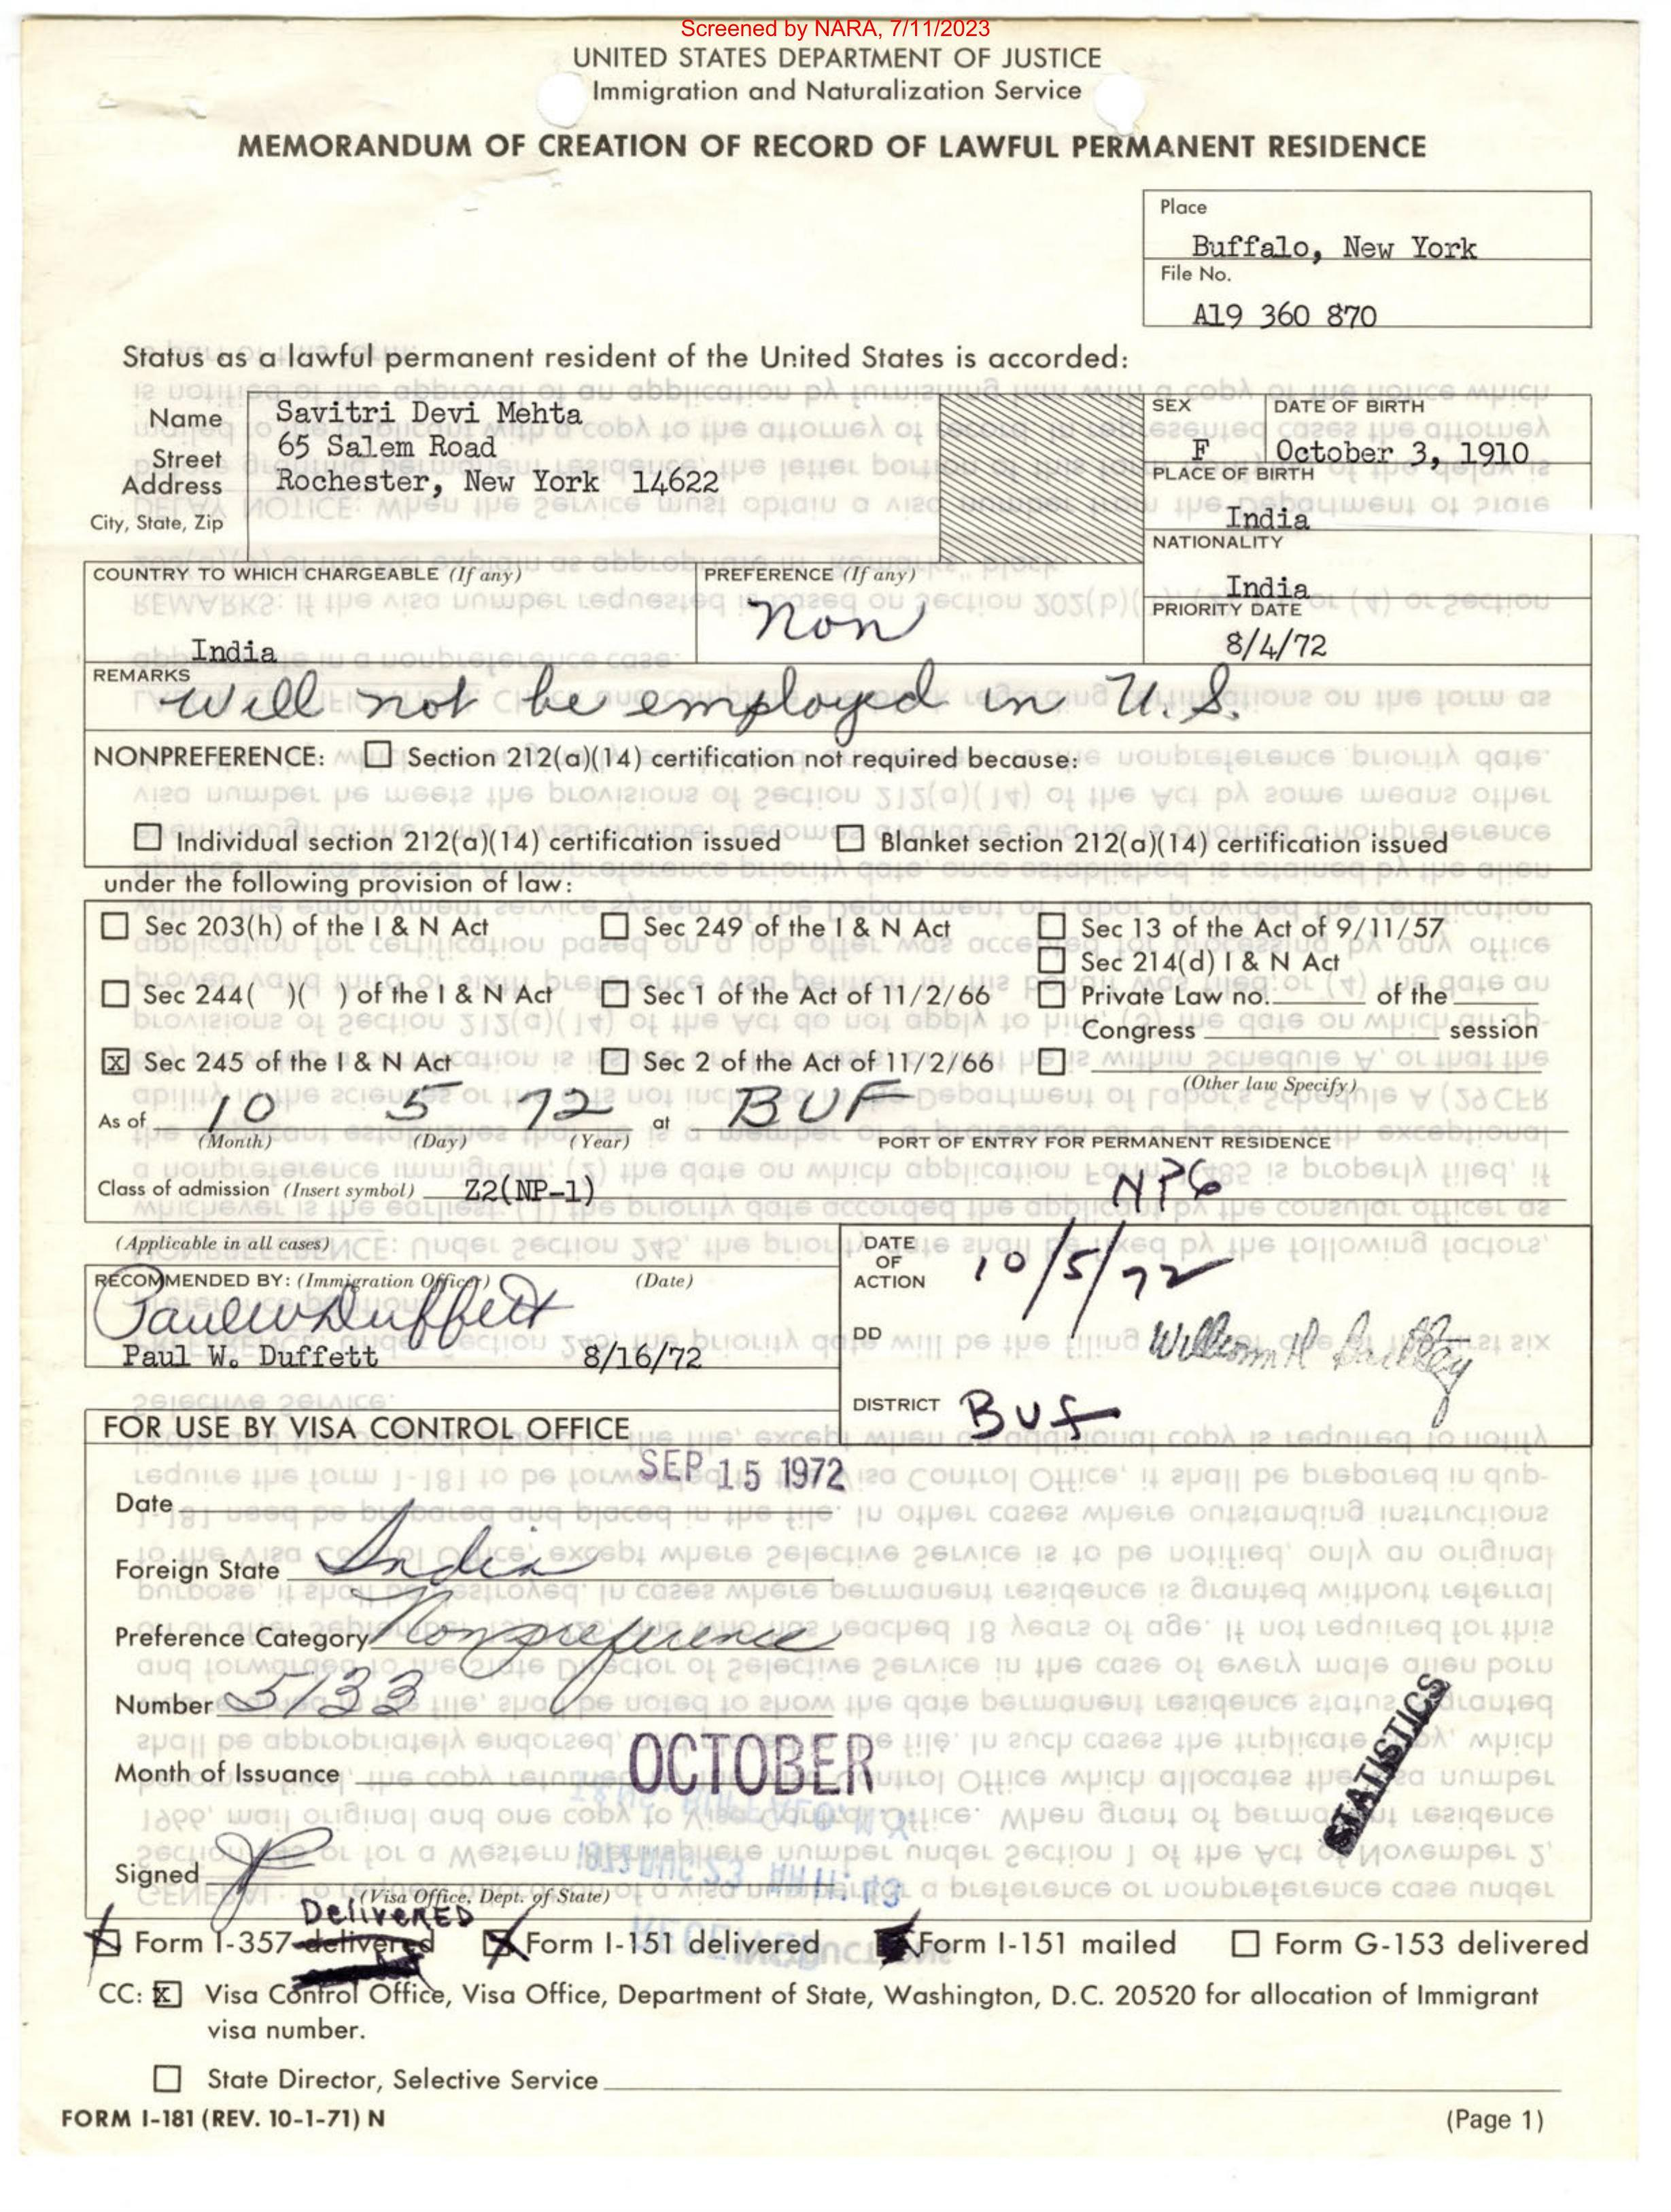 Screened by NARA, 7/11/2023
UNITED STATES DEPARTMENT OF JUSTICE
Immigration and Naturalization Service
MEMORANDUM OF CREATION OF RECORD OF LAWFUL PERMANENT RESIDENCE
Place
Buffalo, New York
File No.
A19 360 870
Status as a lawful permanent resident of the United States is accorded:
Name Savitri Devi Mehta
Street Address 65 Salem Road
City, State, Zip Rochester, New York 14622
SEX F
DATE OF BIRTH October 3, 1910
PLACE OF BIRTH
India
NATIONALITY
India
COUNTRY TO WHICH CHARGEABLE (If any)
India
PREFERENCE (If any)
Non
PRIORITY DATE
8/4/72
REMARKS
Will not be employed in U.S.
NONPREFERENCE: ☐ Section 212(a)(14) certification not required because:
☐ Individual section 212(a)(14) certification issued ☐ Blanket section 212(a)(14) certification issued
under the following provision of law:
☐ Sec 203(h) of the I & N Act ☐ Sec 249 of the I & N Act ☐ Sec 13 of the Act of 9/11/57
☐ Sec 214(d) I & N Act
☐ Sec 244( )( ) of the I & N Act ☐ Sec 1 of the Act of 11/2/66 ☐ Private Law no. of the
Congress session
☒ Sec 245 of the I & N Act ☐ Sec 2 of the Act of 11/2/66 ☐
(Other law Specify)
As of 10 5 72 at BUF
(Month) (Day) (Year) PORT OF ENTRY FOR PERMANENT RESIDENCE
Class of admission (Insert symbol) Z2(NP-1) NP6
(Applicable in all cases)
RECOMMENDED BY: (Immigration Officer) (Date)
Paul W Duffett
Paul W. Duffett 8/16/72
DATE OF ACTION 10/5/72
DD William H
DISTRICT BUF
FOR USE BY VISA CONTROL OFFICE
Date SEP 15 1972
Foreign State India
Preference Category Nonpreference
Number 5133
Month of Issuance OCTOBER
STATISTICS
Signed
(Visa Office, Dept. of State)
DELIVERED
☒ Form I-357 delivered ☒ Form I-151 delivered Form I-151 mailed ☐ Form G-153 delivered
CC: ☒ Visa Control Office, Visa Office, Department of State, Washington, D.C. 20520 for allocation of Immigrant
visa number.
☐ State Director, Selective Service
FORM I-181 (REV. 10-1-71) N
(Page 1)